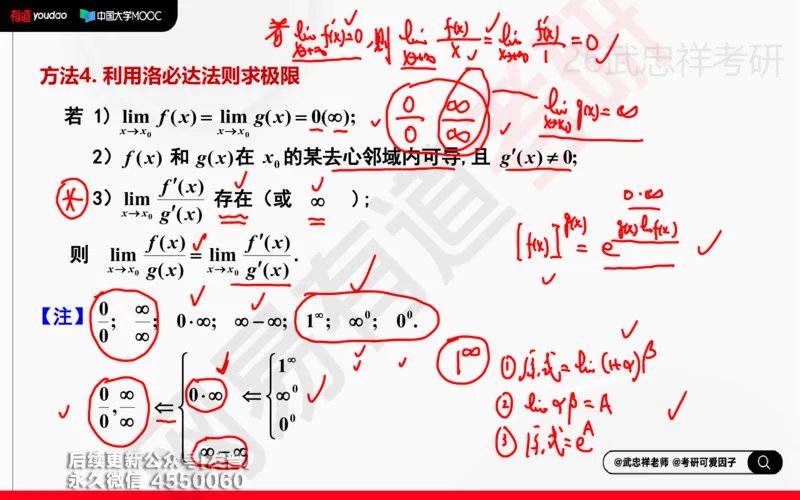 有道 youdao 中国大学MOOC
若 lim x→∞ f'(x)=0, 则 lim x→∞ f(x)/x = lim x→∞ f'(x)/1 = 0
26武忠祥考研
方法4. 利用洛必达法则求极限
若 1) lim x→x₀ f(x) = lim x→x₀ g(x) = 0(∞);
0/0 ∞/∞
lim x→x₀ g(x)=∞
2) f(x) 和 g(x)在 x₀ 的某去心邻域内可导,且 g′(x)≠0;
3) lim x→x₀ f′(x)/g′(x) 存在 (或 ∞ );
0·∞
[f(x)]^g(x) = e^g(x)lnf(x)
则 lim x→x₀ f(x)/g(x) = lim x→x₀ f′(x)/g′(x).
【注】 0/0; ∞/∞; 0·∞; ∞−∞; 1^∞; ∞⁰; 0⁰.
1^∞ ① 原式=lim(1+α)^β
② lim αβ=A
③ 原式=e^A
0/0, ∞/∞ ⇐ { 0·∞ ⇐ { 1^∞
∞⁰
0⁰
∞−∞
网易有道考研
后续更新公众号
永久微信 4550060
@武忠祥老师 @考研可爱因子